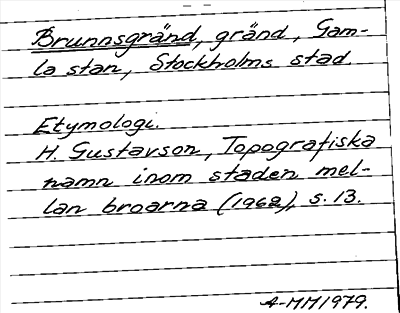 Brunnsgränd, gränd, Gam-
la stan, Stockholms stad.
Etymologi.
H. Gustavson, Topografiska
namn inom staden mel-
lan broarna (1962), s. 13.
A-MM1979.